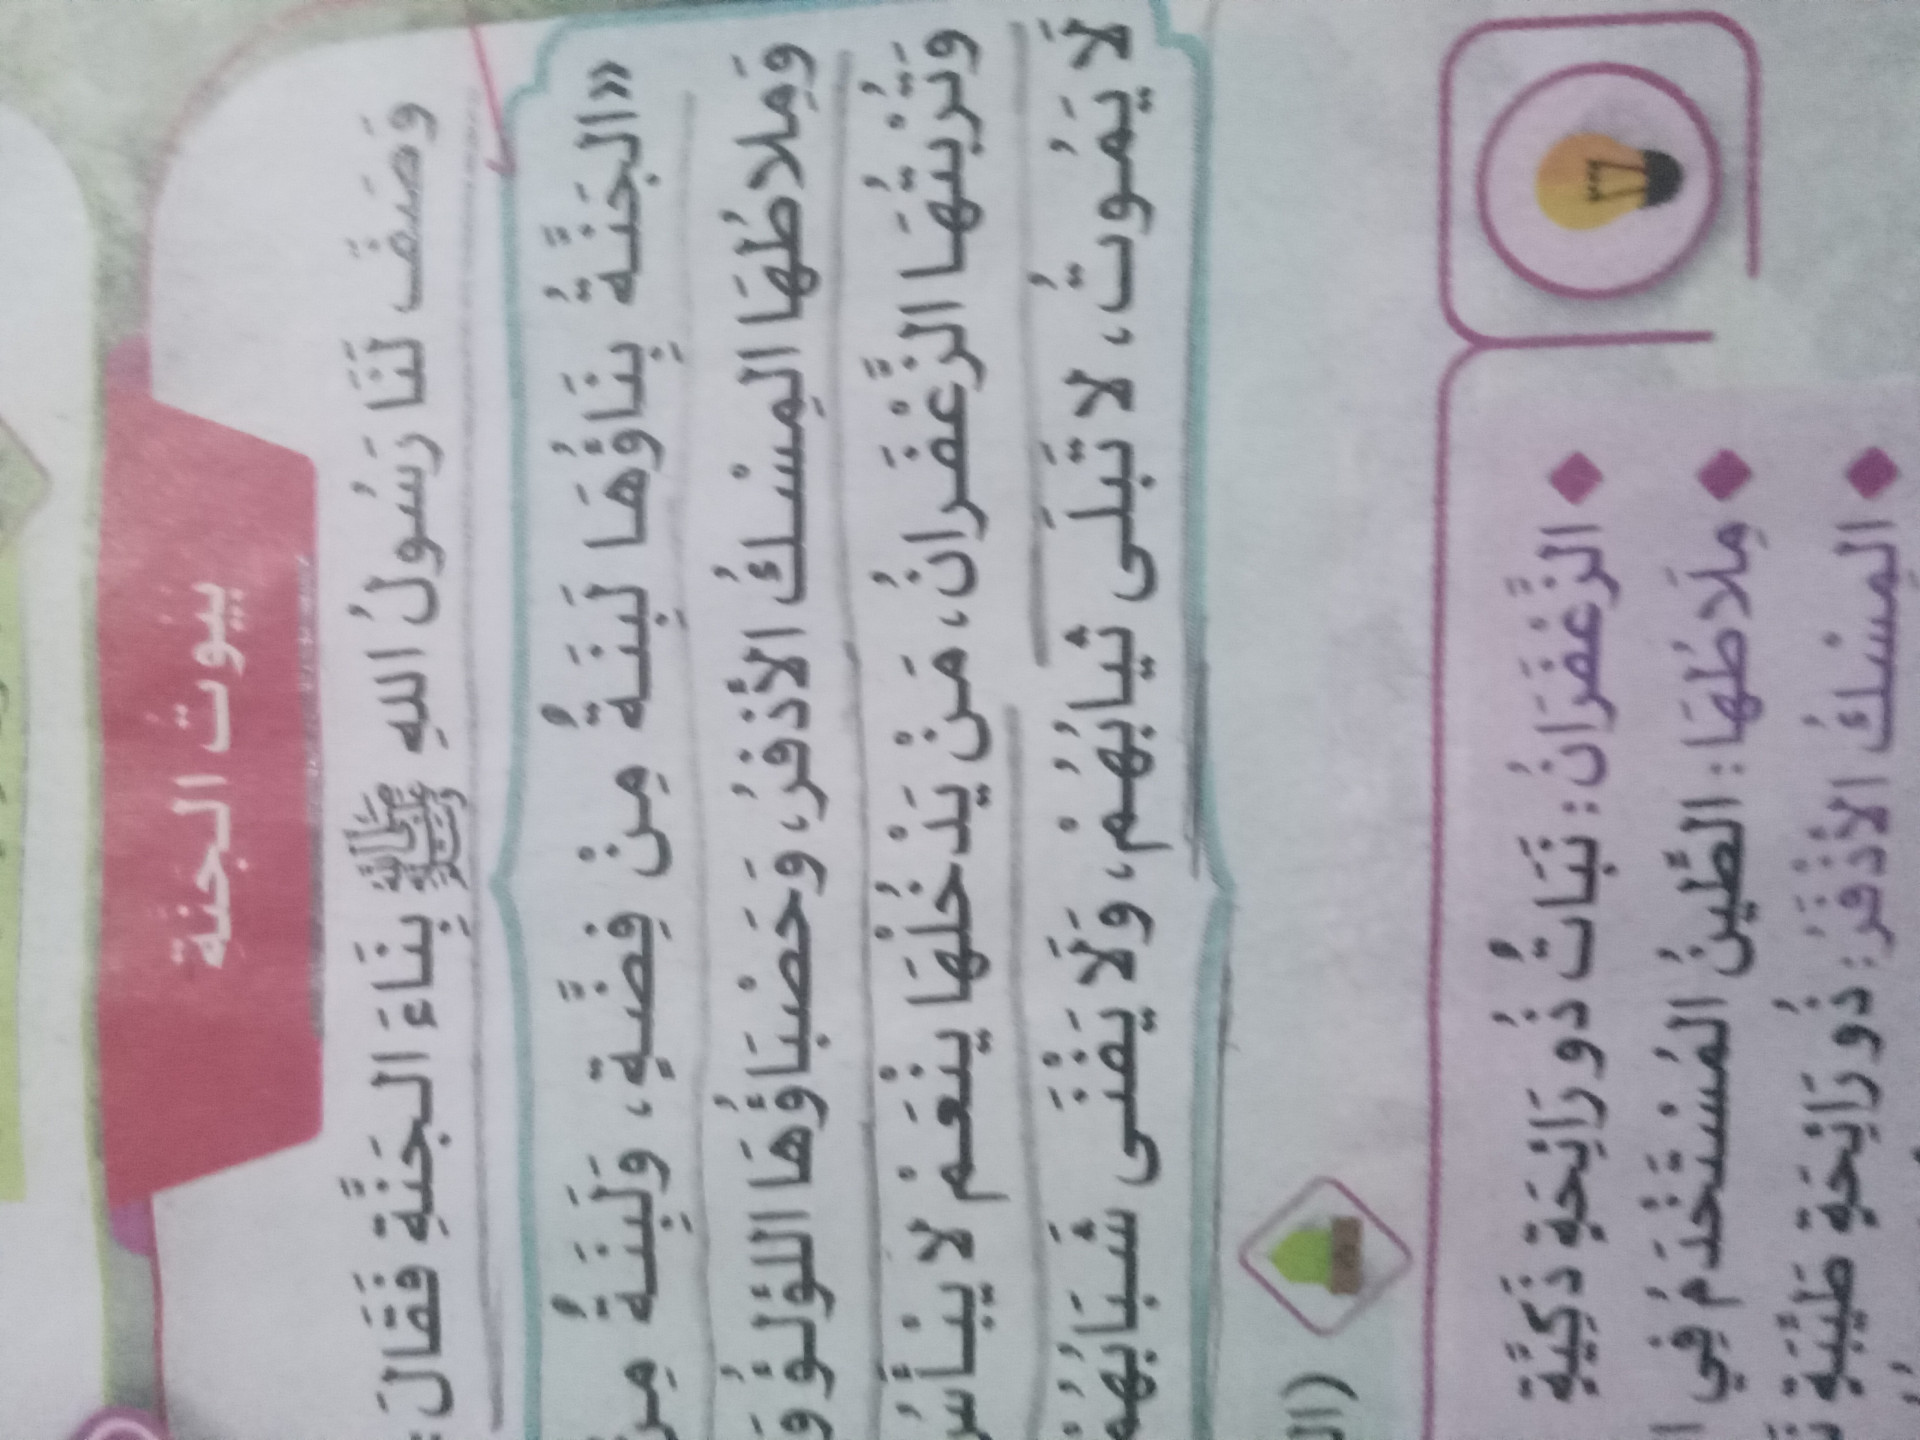 بيوت الجنة
وَصَفَ لَنَا رَسُولُ اللهِ ﷺ بِنَاءَ الجَنَّةِ فَقَالَ:
«الجَنَّةُ بِنَاؤُهَا لَبِنَةٌ مِنْ فِضَّةٍ، وَلَبِنَةٌ مِنْ
وَمِلاطُهَا المِسْكُ الأَذْفَرُ، وَحَصْبَاؤُهَا اللؤلُؤُ وَ
وَتُرْبَتُهَا الزَّعْفَرانُ، مَنْ يَدْخُلْهَا يَنْعَمْ لا يَبْأَسُ
لَا يَمُوتُ، لا تَبْلَى ثيابُهُمْ، وَلَا يَفْنَى شَبَابُهُمْ
(ال
الزَّعْفَرَانُ: نَبَاتٌ ذُو رَائِحَةٍ ذَكِيَّةٍ
مِلَاطُهَا: الطِّينُ المُسْتَخْدَمُ فِي ا
المِسْكُ الأَذْفَرُ: ذُو رَائِحَةٍ طَيِّبَةٍ